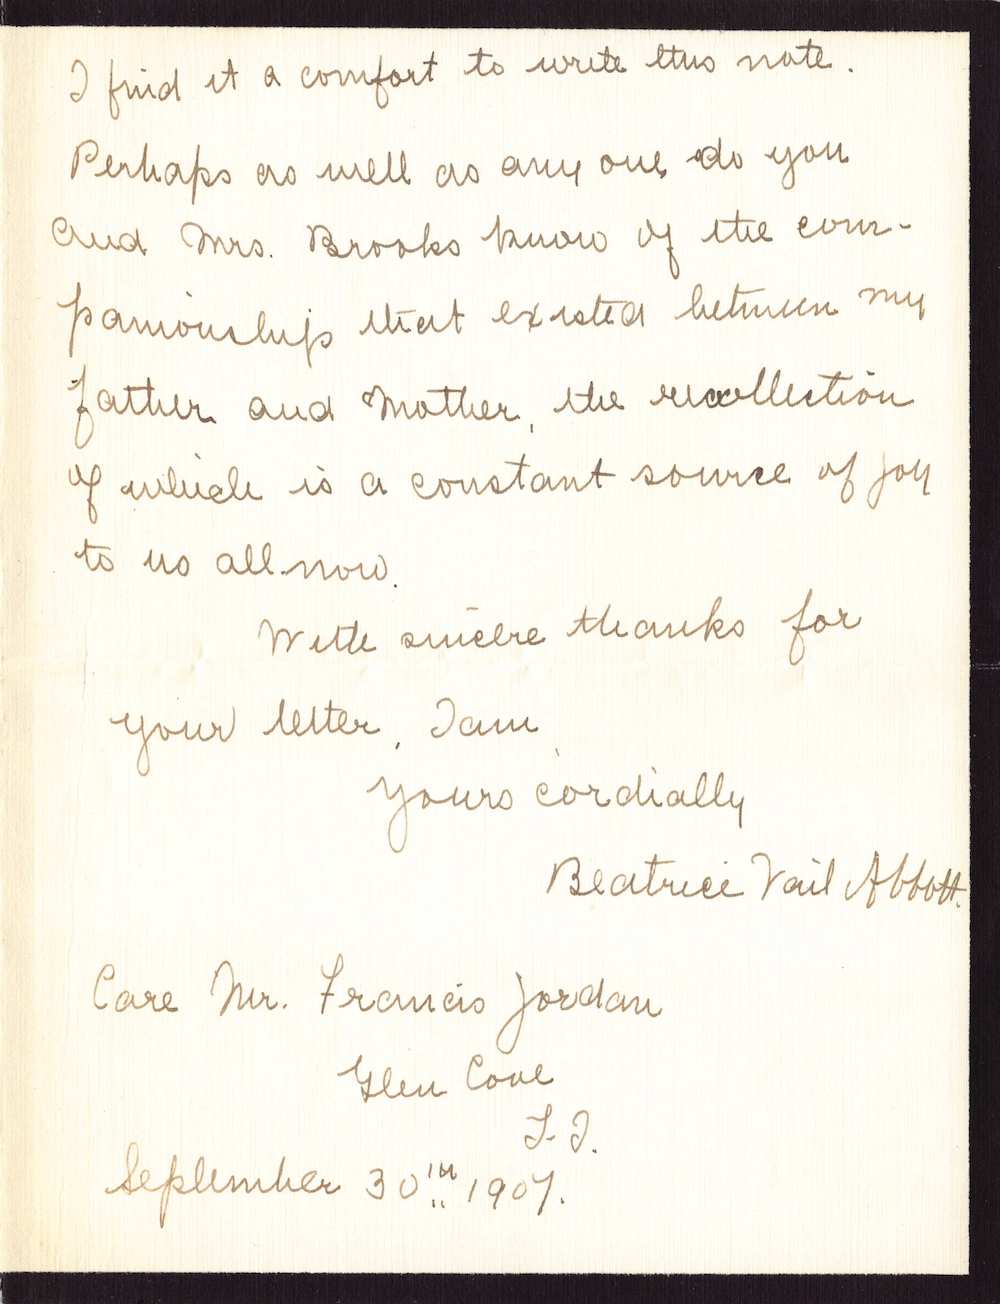 I find it a comfort to write this note.
Perhaps as well as any one, do you
and Mrs. Brooks know of the com-
panionship that existed between my
father and Mother, the recollection
of which is a constant source of joy
to us all now.
With sincere thanks for
your letter, I am
Yours cordially
Beatrice Vail Abbott.
Care Mr. Francis Jordan
Glen Cove
L. I.
September 30th 1907.